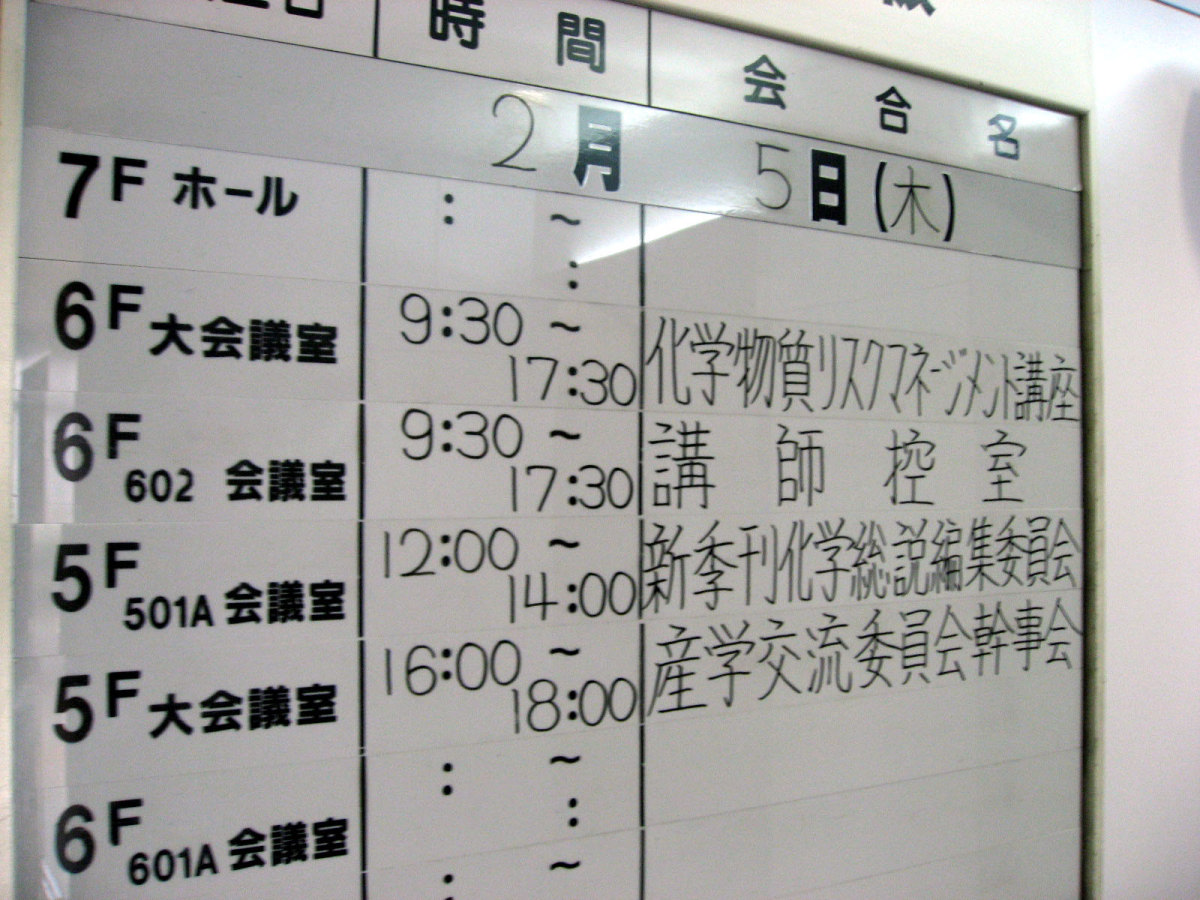 時間 会合名
2月 5日(木)
7F ホール : ~ :
6F 大会議室 9:30 ~ 17:30 化学物質リスクマネージメント講座
6F 602 会議室 9:30 ~ 17:30 講師控室
5F 501A 会議室 12:00 ~ 14:00 新季刊化学総説編集委員会
5F 大会議室 16:00 ~ 18:00 産学交流委員会幹事会
6F 601A 会議室 : ~ :
: ~